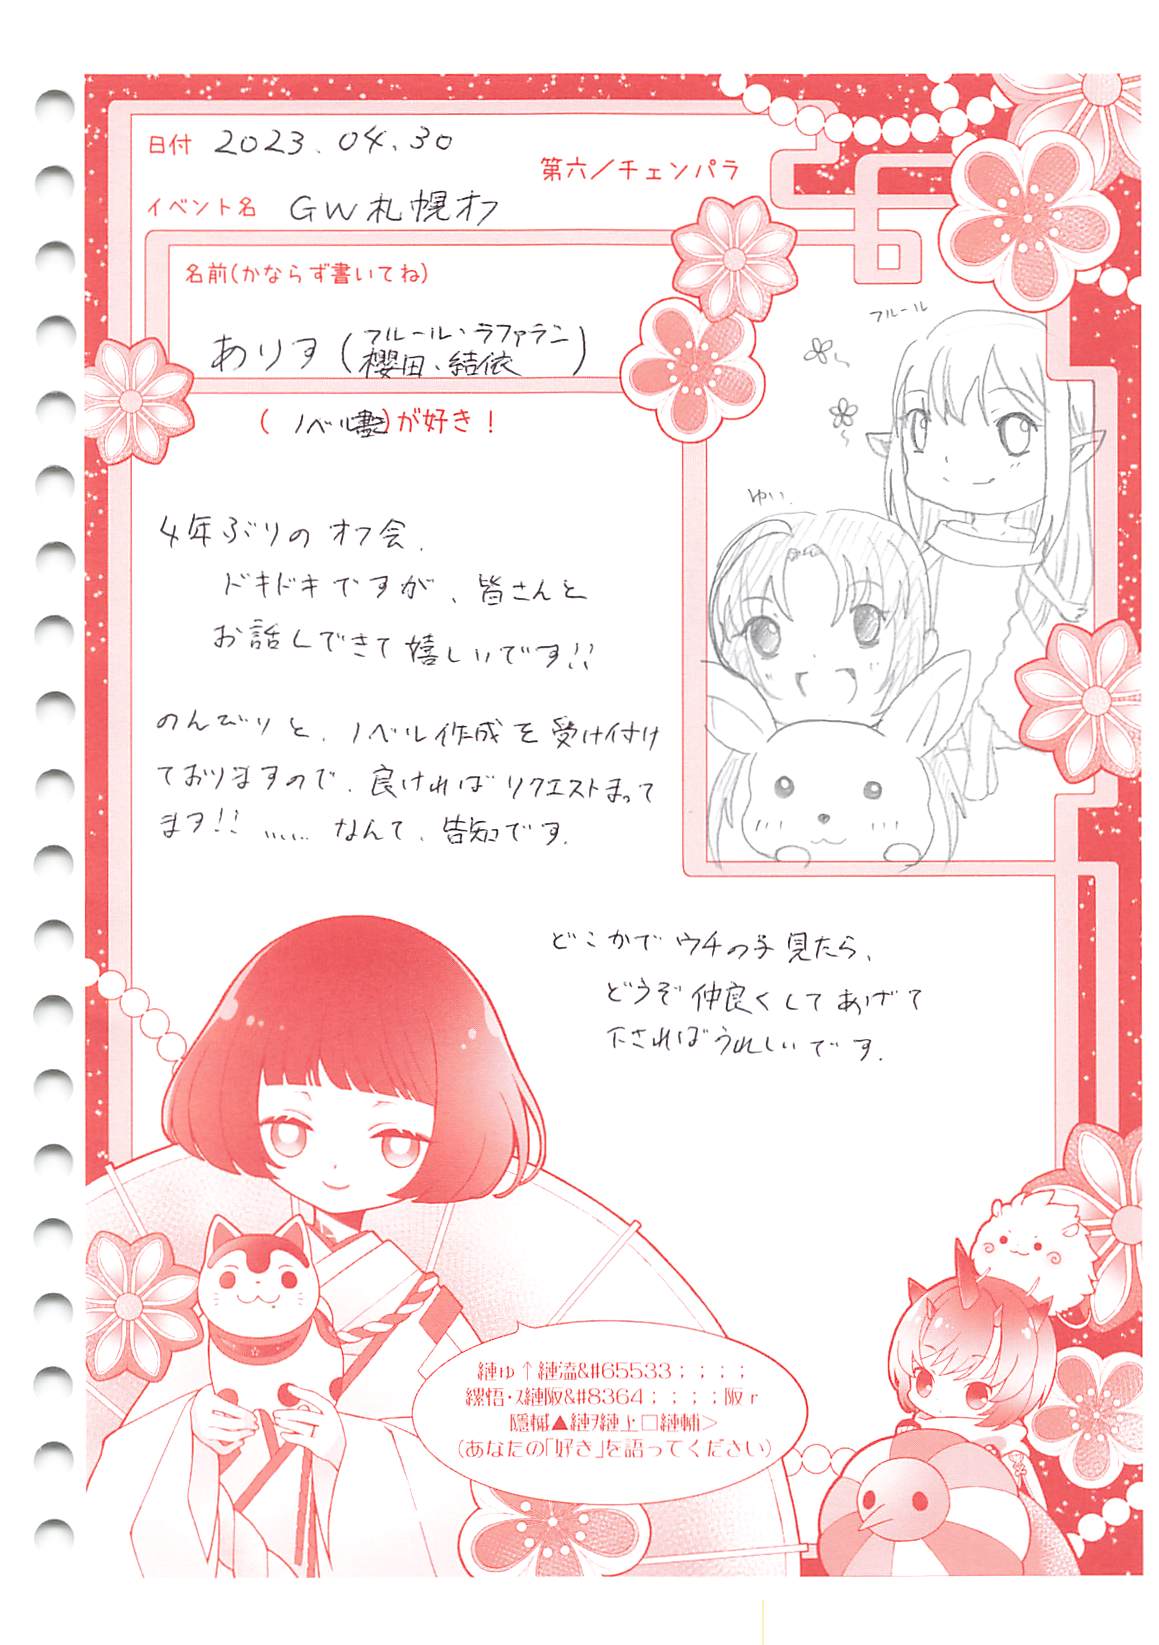 日付 2023.04.30
第六／チェンパラ
イベント名 GW札幌オフ
名前(かならず書いてね)
ありす(フルール・ラファラン
櫻田・結依)
(ノベル書き)が好き!
フルール
ゆい
4年ぶりのオフ会.
ドキドキですが、皆さんと
お話しできて嬉しいです!!
のんびりと、ノベル作成を受け付け
ておりますので、良ければリクエストまって
ます!! ……なんて、告知です.
どこかでウチの子見たら、
どうぞ仲良くしてあげて
下さればうれしいです.
縺ゅ↑縺溘&#65533;;;;
縲悟・ｽ縺阪&#8364;;;;阪ｒ
▲縺ｦ縺上□縺輔>
(あなたの「好き」を語ってください)